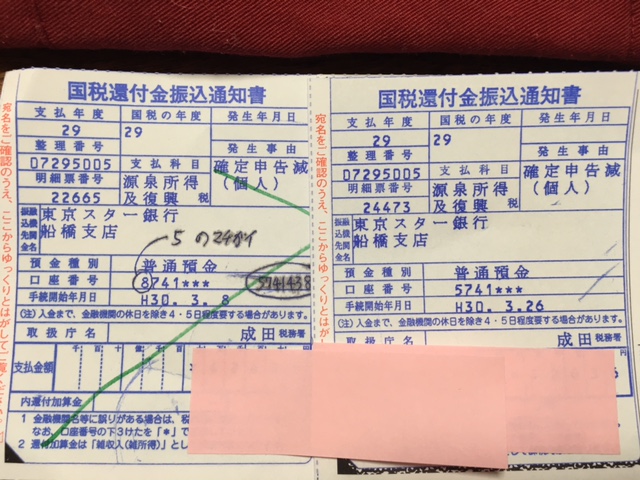 国税還付金振込通知書
支払年度
国税の年度
発生年月日
29
29
整理番号
発生事由
07295005
支払科目
確定申告減
(個人)
明細票番号
源泉所得
及復興
税
22665
振込先金融機関名
東京スター銀行
船橋支店
5の
預金種別
普通預金
口座番号
8741***
手続開始年月日
H30.3.8
(注)入金まで、金融機関の休日を除き4・5日程度要する場合があります。
取扱庁名
成田
税務署
支払金額
内還付加算金
1 金融機関名等に誤りがある場合は、税
なお、口座番号の下3けたを「*」で
2 還付加算金は「雑収入(雑所得)」とし
宛名をご確認のうえ、ここからゆっくりとはがして
国税還付金振込通知書
支払年度
国税の年度
発生年月日
29
29
整理番号
発生事由
07295005
支払科目
確定申告減
(個人)
明細票番号
源泉所得
及復興
税
24473
東京スター銀行
船橋支店
預金種別
普通預金
口座番号
5741***
手続開始年月日
H30.3.26
(注)入金まで、金融機関の休日を除き4・5日程度要する場合があります。
取扱庁名
成田
税務署
宛名をご確認のうえ、ここからゆっくりとはがして